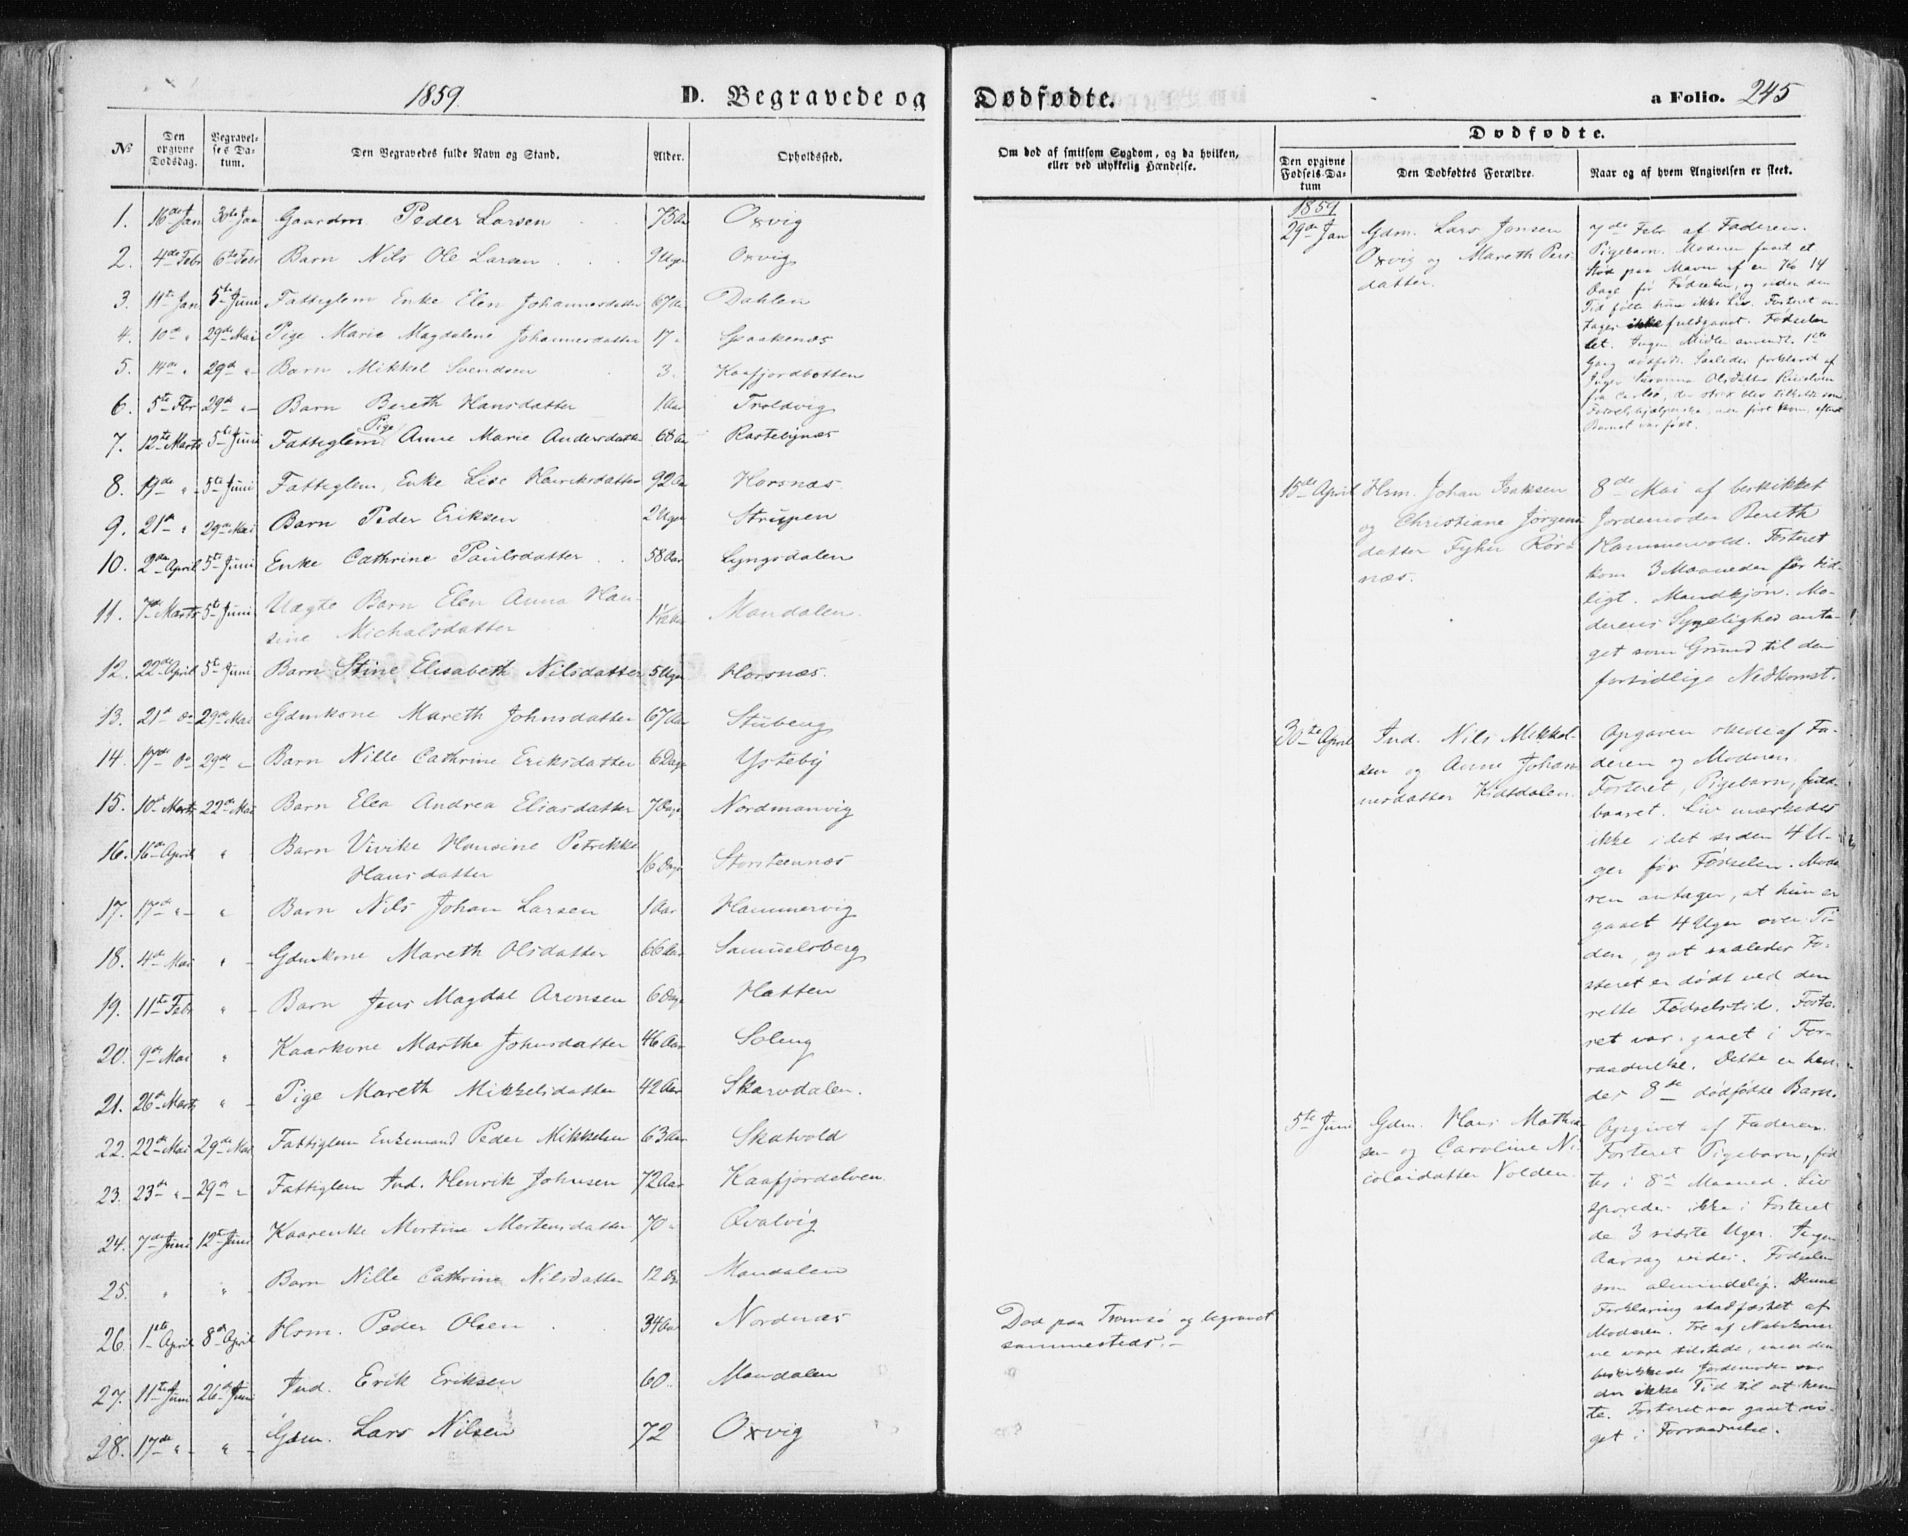 1859
D. Begravede og
Dødfødte.
a Folio. 245
No
Den opgivne Dødsdag.
Begravelses Datum.
Den Begravedes fulde Navn og Stand.
Alder.
Opholdssted.
Om død af smitsom Sygdom, og da hvilken, eller ved ulykkelig Hændelse.
Dødfødte.
Den opgivne Fødsels-Datum
Den Dødfødtes Forældre.
Naar og af hvem Angivelsen er skeet.
1. 16de Jan 30te Jan Gaardm. Peder Larsen 75 Aar Oxvig
2. 4de Febr 6te Febr Barn Nils Ole Larsen 9 Uger Oxvig
3. 11te Jan 5te Juni Fattiglem Enke Elen Johannesdatter 67 Aar Dahlen
4. 10de " 29de Mai Pige Marie Magdalene Johannesdatter 17 " Spaakenæs
5. 14de " 29de " Barn Mikkel Svendsen 3. Kaafjordbotten
6. 5te Fbr 29de " Barn Bereth Hansdatter 1 Aar Troldvig
7. 12te Marts 5te Juni Fattiglem Pige Anne Marie Andersdatter 68 Aar Rastebynæs
8. 19de " 5te Juni Fattiglem, Enke Lise Henriksdatter 92 Aar Horsnæs
9. 21de " 29de Mai Barn Peder Eriksen 2 Uger Strupen
10. 2den April 5te Juni Enke Cathrine Paulsdatter 58 Aar Lyngsdalen
11. 7de Marts 5te Juni Uægte Barn Elen Anna Han-
sine Michalsdatter 1½ Aar Mandalen
12. 22de April 5te Juni Barn Stine Elisabeth Nilsdatter 5 Uger Horsnæs.
13. 21de Do 29de Mai Gdmkone Mareth Johnsdatter 67 Aar Stubeng
14. 17de Do 29de " Barn Nille Cathrine Eriksdatter 6 Dage Ysteby
15. 10de Marts 22de Mai Barn Elea Andrea Eliasdatter 7 Dage Nordmanvig
16. 16de April " Barn Vivike Hansine Petrikke
Hansdatter 16 Dage Storsteennæs
17. 17de " " Barn Nils Johan Larsen 1 Aar Hammervig
18. 4de Mai " Gdmkone Mareth Olsdatter 66 Aar Samuelsberg
19. 11te Febr " Barn Jens Magdal Aronsen 6 Dage Hatten
20. 9de Mai " Kaarkone Marthe Johnsdatter 46 Aar Soleng
21. 26de Marts " Pige Mareth Mikkelsdatter 42 Aar Skarvdalen.
22. 22de Mai 29de Mai Fattiglem Enkemand Peder Mikkelsen 63 Aar Skatvold
23. 23de " 29de " Fattiglem Ind. Henrik Johnsen 72 Aar Kaafjordelven.
24. 7de Juni 12te Juni Kaarenke Martine Mortensdatter 70 " Qvalvig
25. " " Barn Nille Cathrine Nilsdatter 12 Dg Mandalen
26. 1ste April 8de April Hsm. Peder Olsen 34 Aar Nordnæs
Død paa Tromsø og begravet
sammesteds.
27. 11te Juni 26de Juni Ind. Erik Eriksen 60. Mandalen
28. 17de " " Gdm. Lars Nilsen 72 Oxvig
1859
29de Jan
Gdm. Lars Jonsen
Oxvig og Mareth Pers-
datter.
7de Febr af Faderen.
Pigebarn. Moderen faaet et
Stød paa Maven af en Ko 14
Dage før Fødselen, og siden den
Tid følte hun ikke Liv. Fosteret an-
tages ikke fuldgaaet. Fødselen
let. Ingen Midler anvendt.
Gang dødfødt. Saaledes forklaret af
Inger Susanna Olsdatter
fra
Fødselshjælperske,
Barnet var født.
15de April
Hsm. Johan Isaksen
og Christiane Jørgens-
datter Fyhn Rørs-
næs.
8de Mai af beskikket
Jordemoder Bereth
Hammervold. Fosteret
kom 3 Maaneder før tid-
ligt. Mandkjøn. Mo-
derens Sygelighed anta-
get som Grund til den
fortidlige Nedkomst.
30te April
Ind. Nils Mikkel-
sen og Anne Johan-
nesdatter Kidtdalen.
Opgaven skede af Fa-
deren og Moderen.
Fosteret, Pigebarn, fuld-
baaret. Liv mærkedes
ikke i det siden 4 U-
ger før Fødselen. Mode-
ren antager, at hun er
gaaet 4 Uger over Ti-
den, og at saaledes Fo-
steret er dødt ved den
rette Fødselstid. Foste-
ret var gaaet i For-
raadnelse. Dette er hen-
des 8de dødfødte Barn.
5te Juni
Gdm. Hans Mathi-
sen og Caroline Ni-
colaidatter Volden.
Opgivet af Faderen.
Fosteret Pigebarn, fød-
tes i 8de Maaned. Liv
sporedes ikke i Fosteret
de 3 sidste Uger. Ingen
Aarsag vides. Fødselen
som almindelig. Denne
Forklaring stadfæstet af
Moderen. Tre af Nabokoner-
ne vare tilstede, men den
beskikkede Jordemoder var
der ikke Tid til at hen-
te. Fosteret var gaaet no-
get i Forraadnelse.